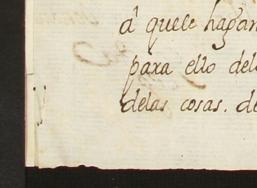 á quele hagan
para ello del
delas cosas. de